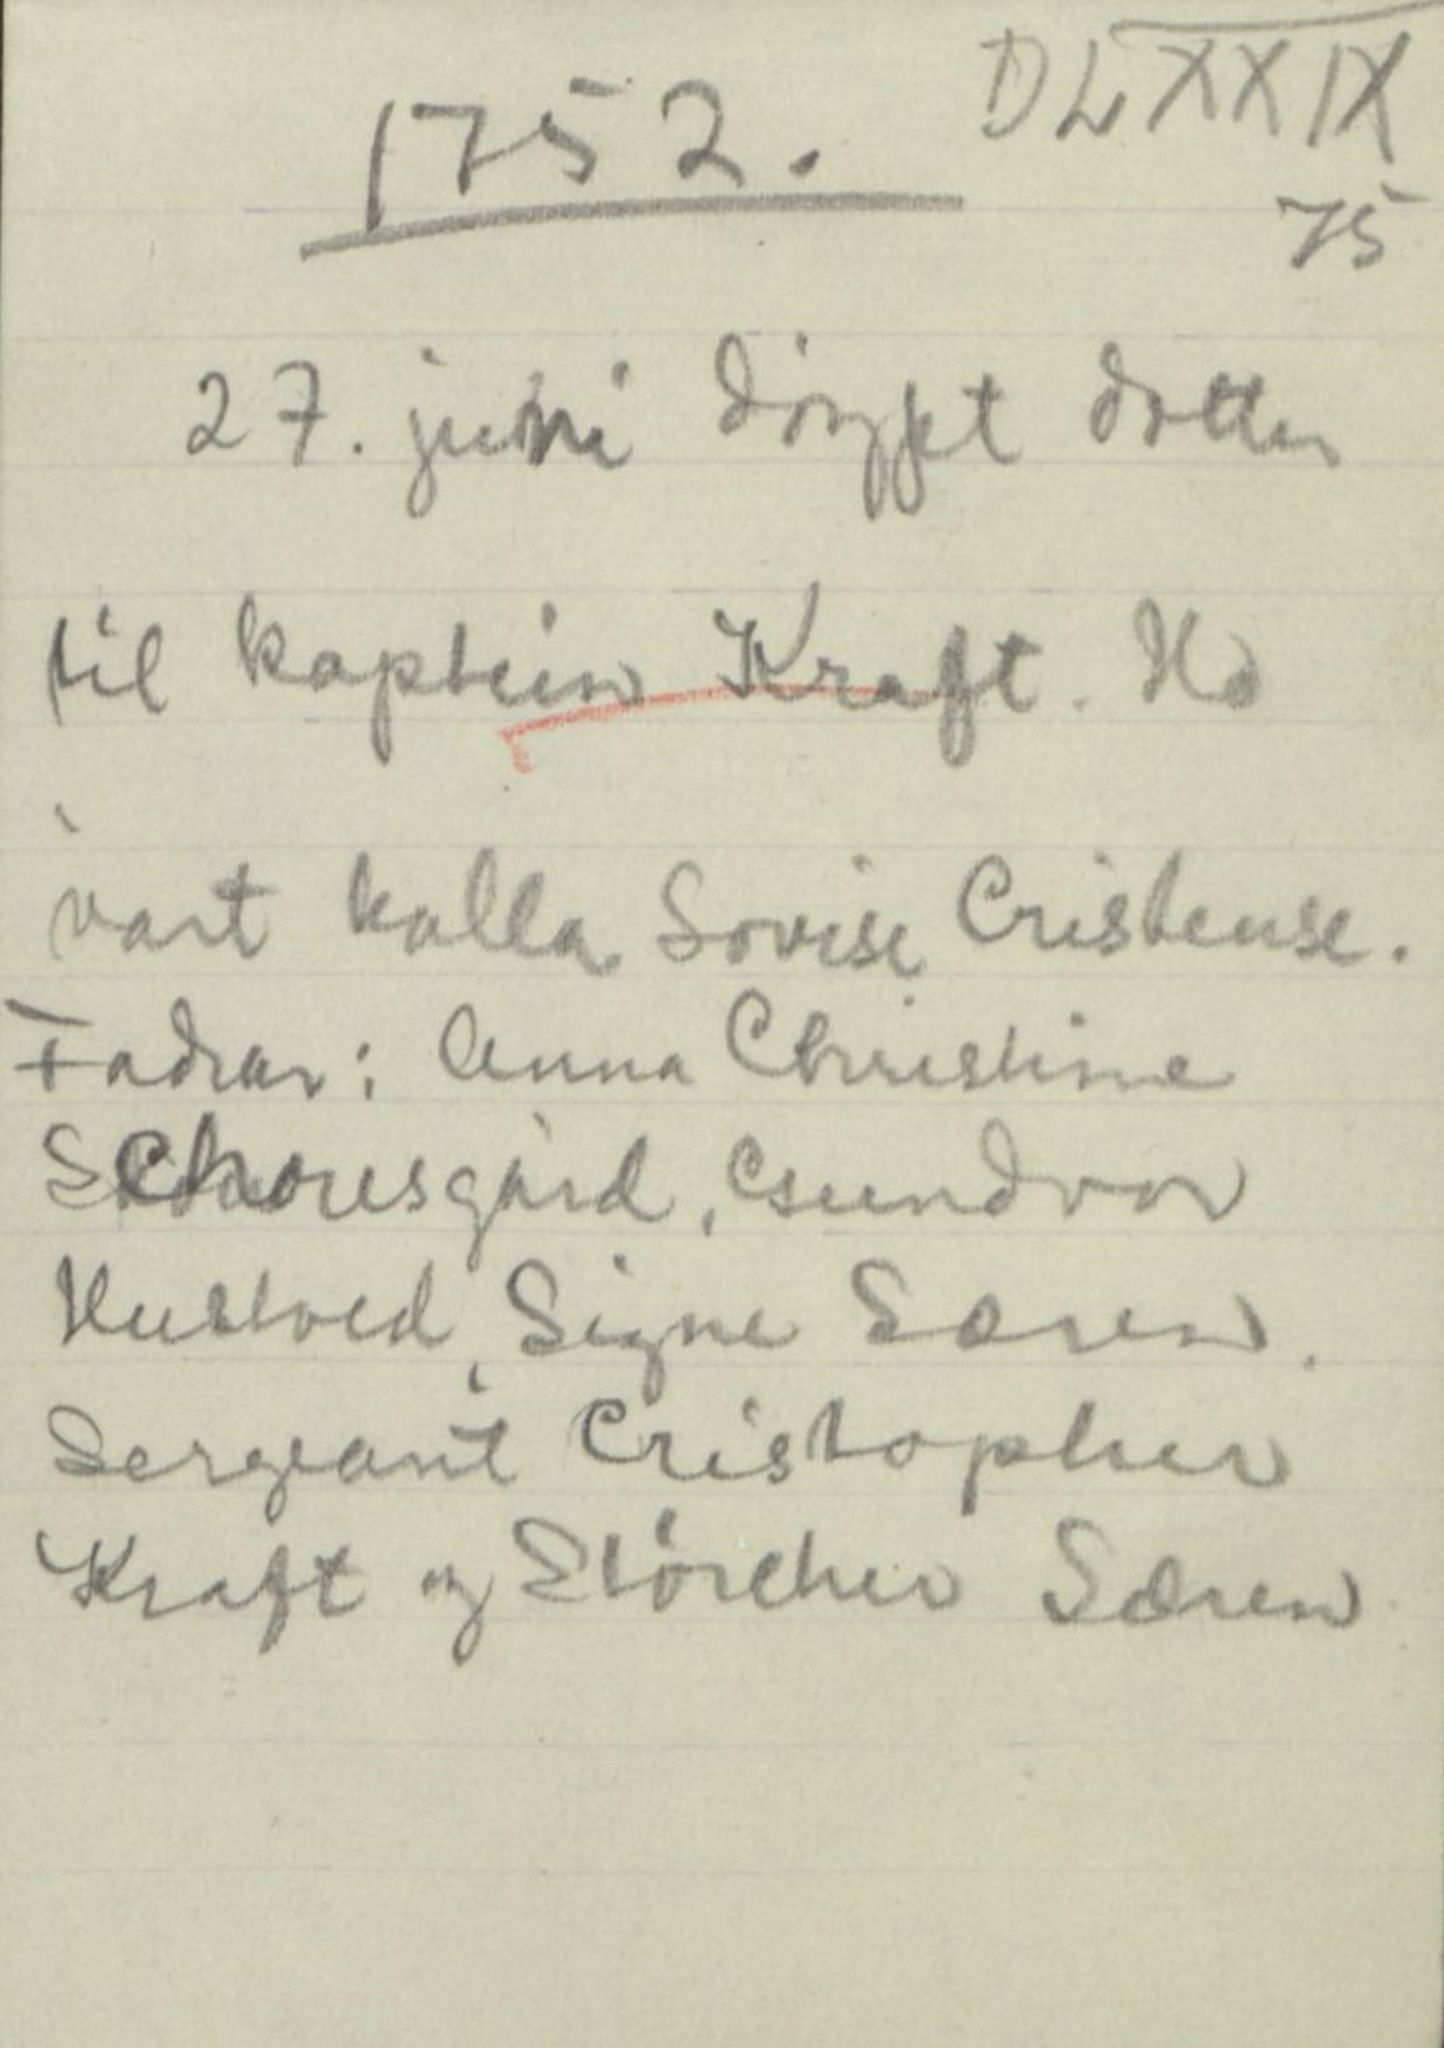 DLXXIX
1752.
75
27. juni döypt dotter
til kaptein Kraft. Ho
vart kalla Lovise Cristense.
Fadrar: Anna Christine
Schoresgård, Gundvor
Hustved, Signe Søren.
Sergeant Cristopher
Kraft og Störcher Søren